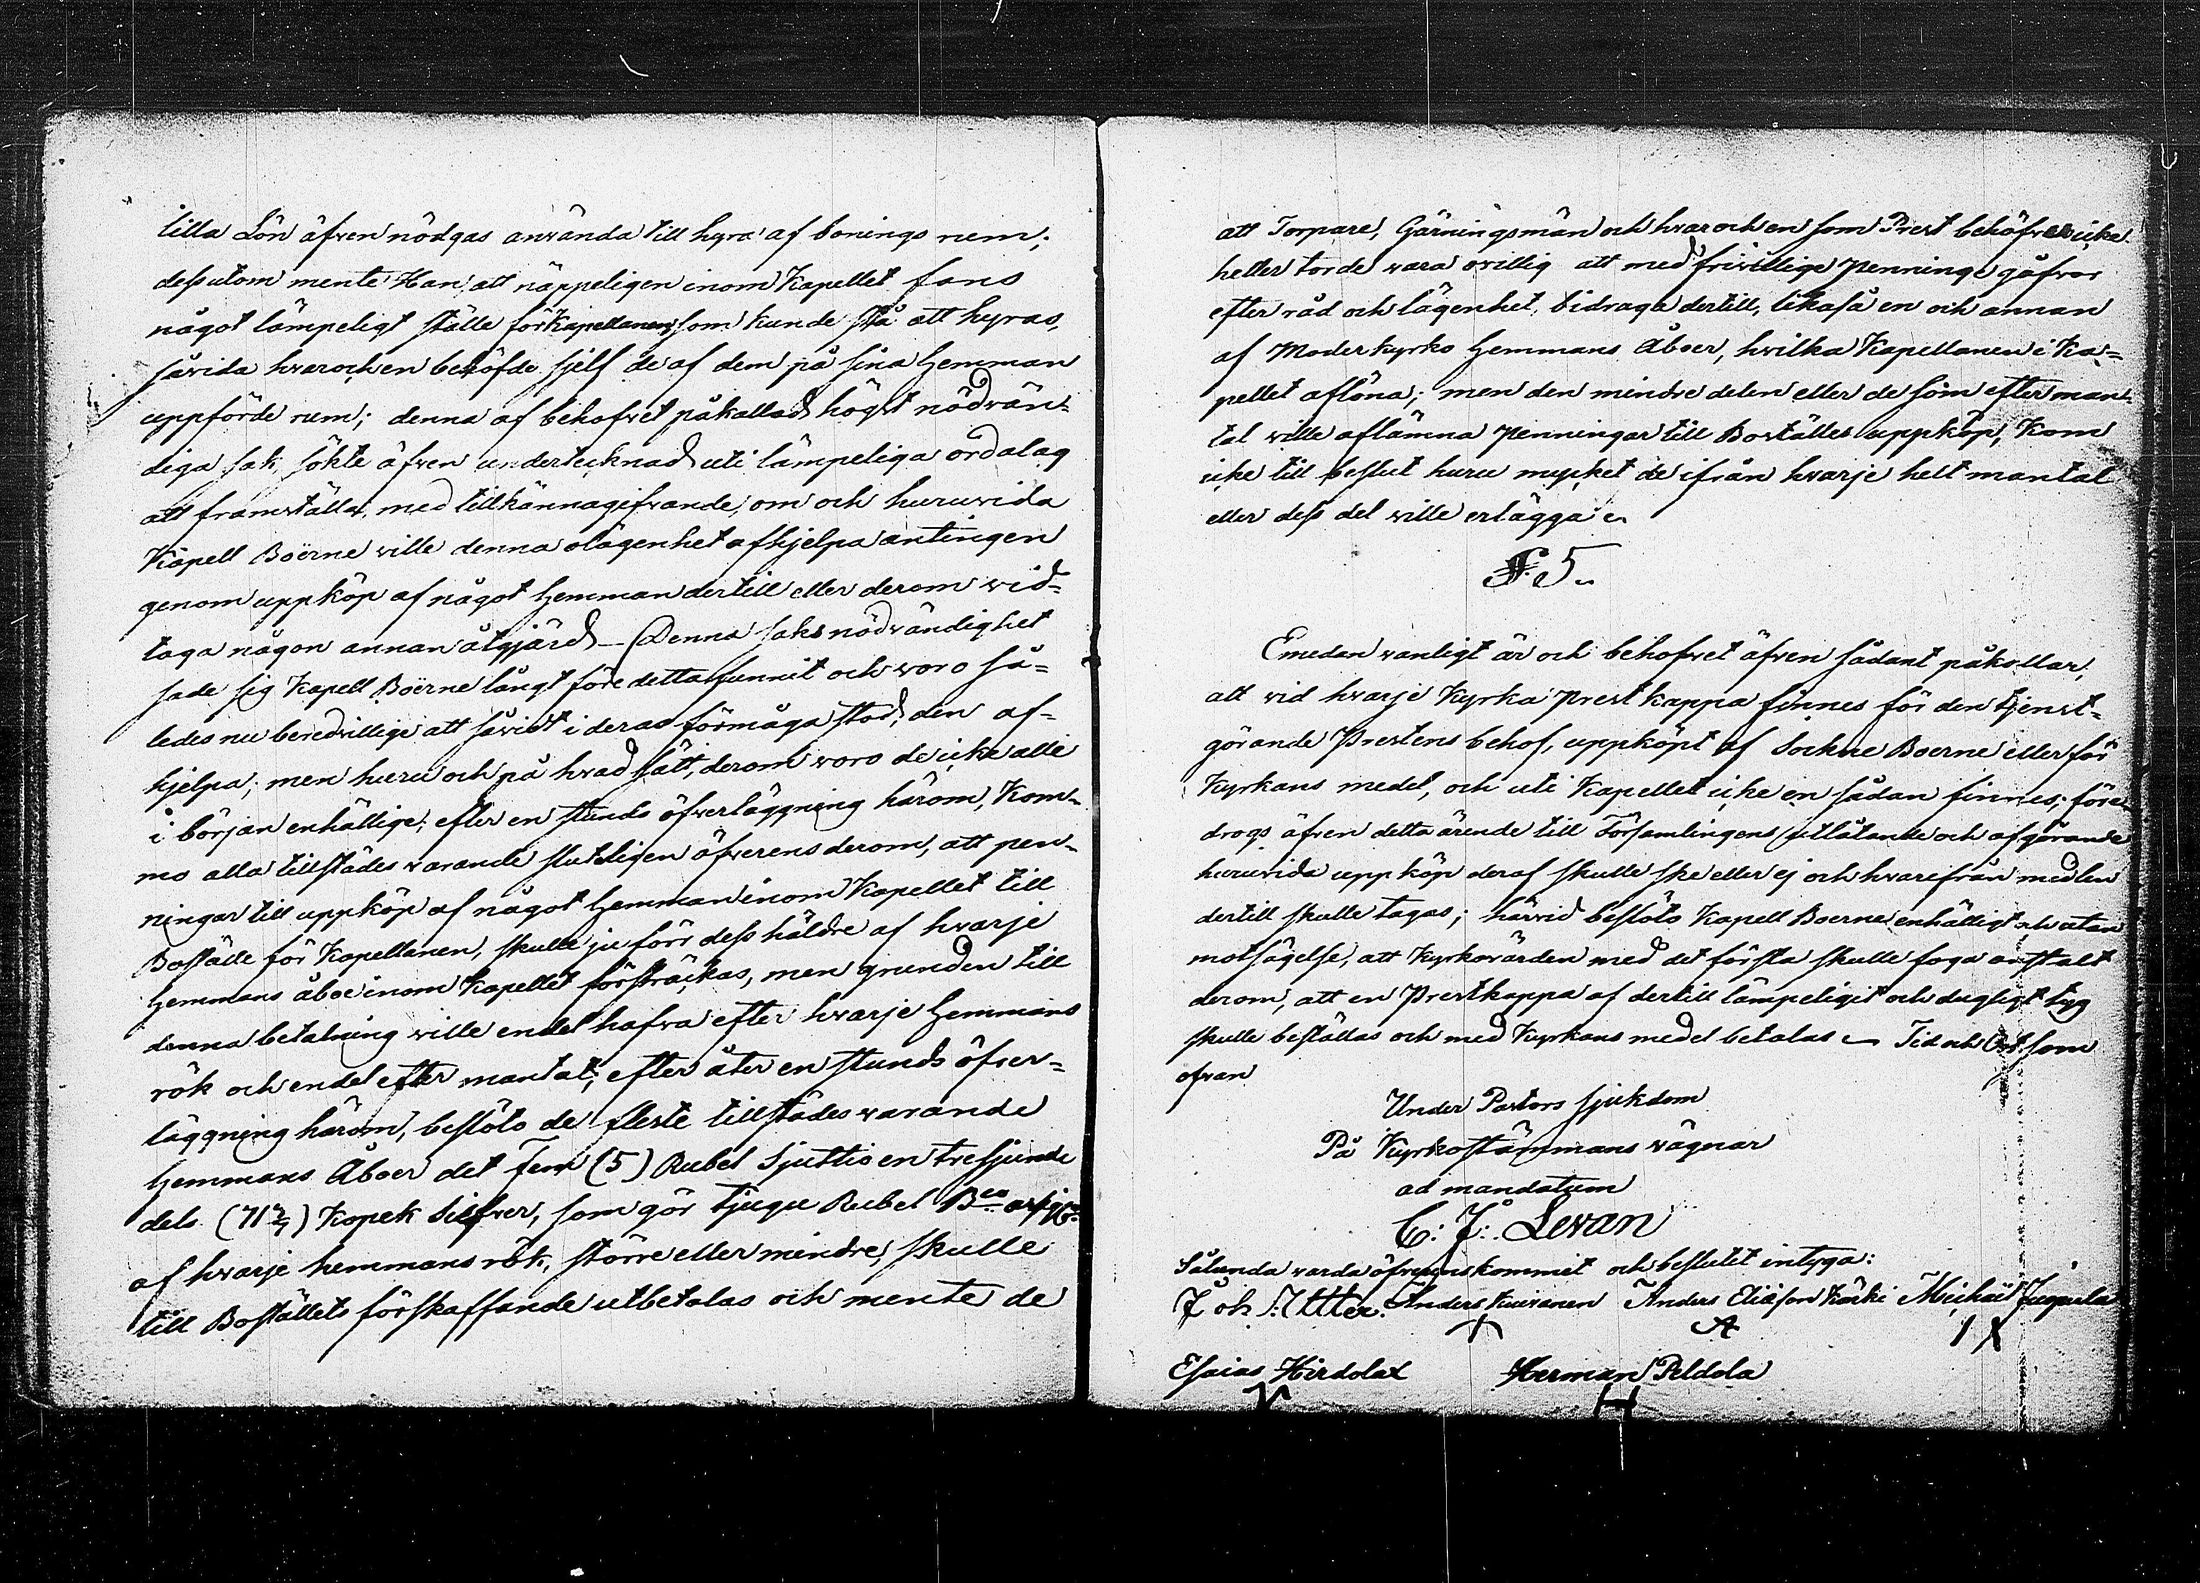 lilla Lön äfven nödgas använda till hyra af bonings rum;
dessutom mente Han, att näppeligen inom Kapellet fans
något lämpeligt ställe för Kapellanen, som kunde stå att hyras,
såvida hvar och en behöfde sjelf de af dem på sina Hemman
uppförde rum; denna af behofvet påkallad högst nödvän-
diga sak, sökte äfven undertecknad uti lämpeliga ordalag
att framställa, med tillkännagifvande, om och huruvida
Kapell Boërne ville denna olägenhet afhjelpa antingen
genom uppköp af något Hemman dertill eller derom vid-
taga någon annan åtgjärd – Denna saks nödvändighet
sade sig Kapell Boërne långt före detta funnit och voro så-
ledes nu beredvillige att såvidt i deras förmåga stod, den af-
hjelpa; men huru och på hvad sätt, derom voro de icke alle
i början enhällige; efter en stunds öfverläggning härom, kom-
mo alla tillstädes varande sluteligen öfverens derom, att pen-
ningar till uppköp af något Hemman inom Kapellet till
Boställe för Kapellanen, skulle ju förr dess häldre af hvarje
Hemmans åboe inom Kapellet försträckas, men grunden till
denna betalning ville en del hafva efter hvarje Hemmans
rök och en del efter mantal; efter åter en stunds öfver-
läggning härom, beslöto de fleste tillstädes varande
Hemmans Åboer det Fem (5) Rubel Sjuttio en tresjunde
dels (71 3/7) Kopek Silfver, som gör tjugu Rubel B:co
af hvarje hemmans rök, större eller mindre, skulle
till Boställets förskaffande utbetalas och mente de
att Torpare, Gärningsmän och hvar och en som Prest behöfver icke
heller torde vara ovillig att med frivillige Penninge gåfvor
efter råd och lägenhet, bidraga dertill, likaså en och annan
af Moderkyrko Hemmans Åboer, hvilka Kapellanen i Ka-
pellet aflöna; men den mindre delen eller de som efter man-
tal ville aflämna Penningar till Boställes uppköp, kom
icke till beslut huru mycket de ifrån hvarje helt mantal
eller dess del ville erlägga
§. 5.
Emedan vanligt är och behofvet äfven sådant påkallar,
att vid hvarje Kyrka Prest kappa finnes för den tjenst-
görande Prestens behof, uppköpt af Sockne Boerne eller för
Kyrkans medel, och uti Kapellet icke en sådan finnes; före-
drogs äfven detta ärende till Församlingens utlåtande och afgörande
huruvida uppköp deraf skulle ske eller ej och hvarifrån medlen
dertill skulle tagas; härvid beslöto Kapell Boerne enhälligt och utan
motsägelse, att Kyrkovärden med det första skulle foga anstalt
derom, att en Prestkappa af dertill lämpeligit och dugligt tyg
skulle beställas och med Kyrkans medel betalas – Tid och Ort som
ofvan
Under Pastors sjukdom
På Kyrkostämmans vägnar
ad mandatum
C: J: Levan
Sålunda varda öfverenskommit och beslutet intyga:
Joh: Utter. Anders Kuivanen Anders Eliasson Kärki Michael Jugurla
Esaias Hirdola Herman Peldola
H